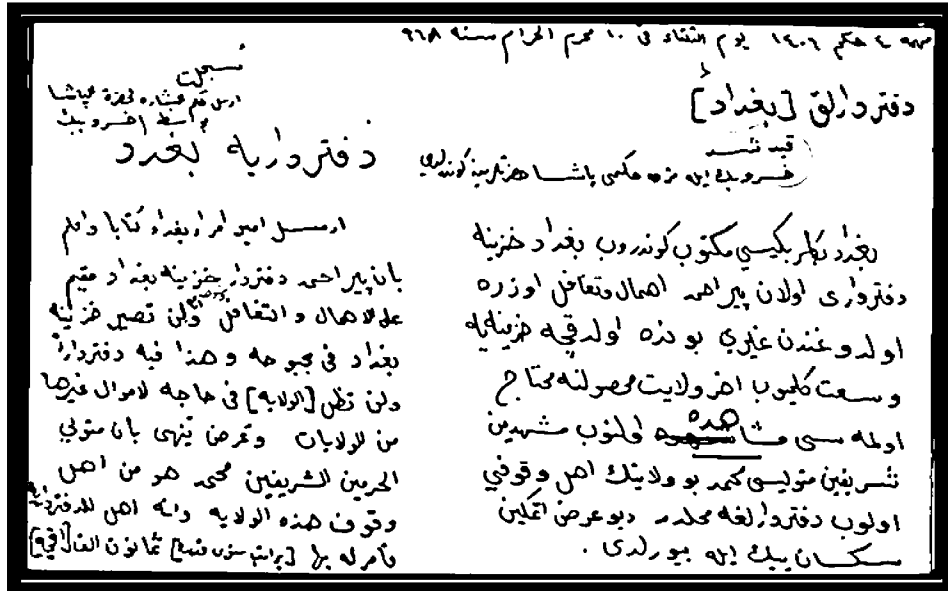 مهمه ٤ حكم ١٤٠٦ يوم الثلثاء في ١٠ محرم الحرام سنه ٩٦٨
دفتردارلق [بغداد]
قيد شد
خسرو بك ايله مزه حكمى پاشا حضرتلرينه كوندرلدى
بغداد بكلربكيسى مكتوب كوندروب بغداد خزينه
دفتردارى اولان پير احمد اهمال وتغافل اوزره
اولدوغندن غيرى بو دفعه اولدقچه خزينه يه
وسعت كلميوب اخر ولايت محصولنه محتاج
اولمه سى مشاهده اولنوب مشهدين
شريفين متوليسى محمد بو ولايتك اهل وقوفى
اولوب دفتردارلغه محلدر ديو عرض اتمكين
سكسان بيك ايله بيورلدى .
سجلت
ارسل
بواسطة خسرو بيك
دفتردارية بغداد
ارسل امير امراء بغداد كتابا واعلم
بان پير احمد دفتردار خزينه بغداد مقيم
على الاهمال والتغافل ولن تصير خزينه
بغداد في بحبوحه وهذا فيه دفتردارا
ولن تظل [الولايه] في حاجه لاموال غيرها
من الولايات وتعرض ينهى بان متولي
الحرمين الشريفين محمد هو من اهل
وقوف هذه الولايه وانه اهل للدفتردارية
فأمر له بها ثمانون الف [اقچه]